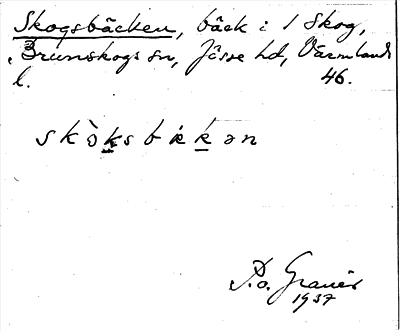 Skogsbäcken, bäck i 1 Skog,
Brunskogs sn, Jösse hd, Värmlands
l. 46.
skòksbäkən
P.o. Granér
1937